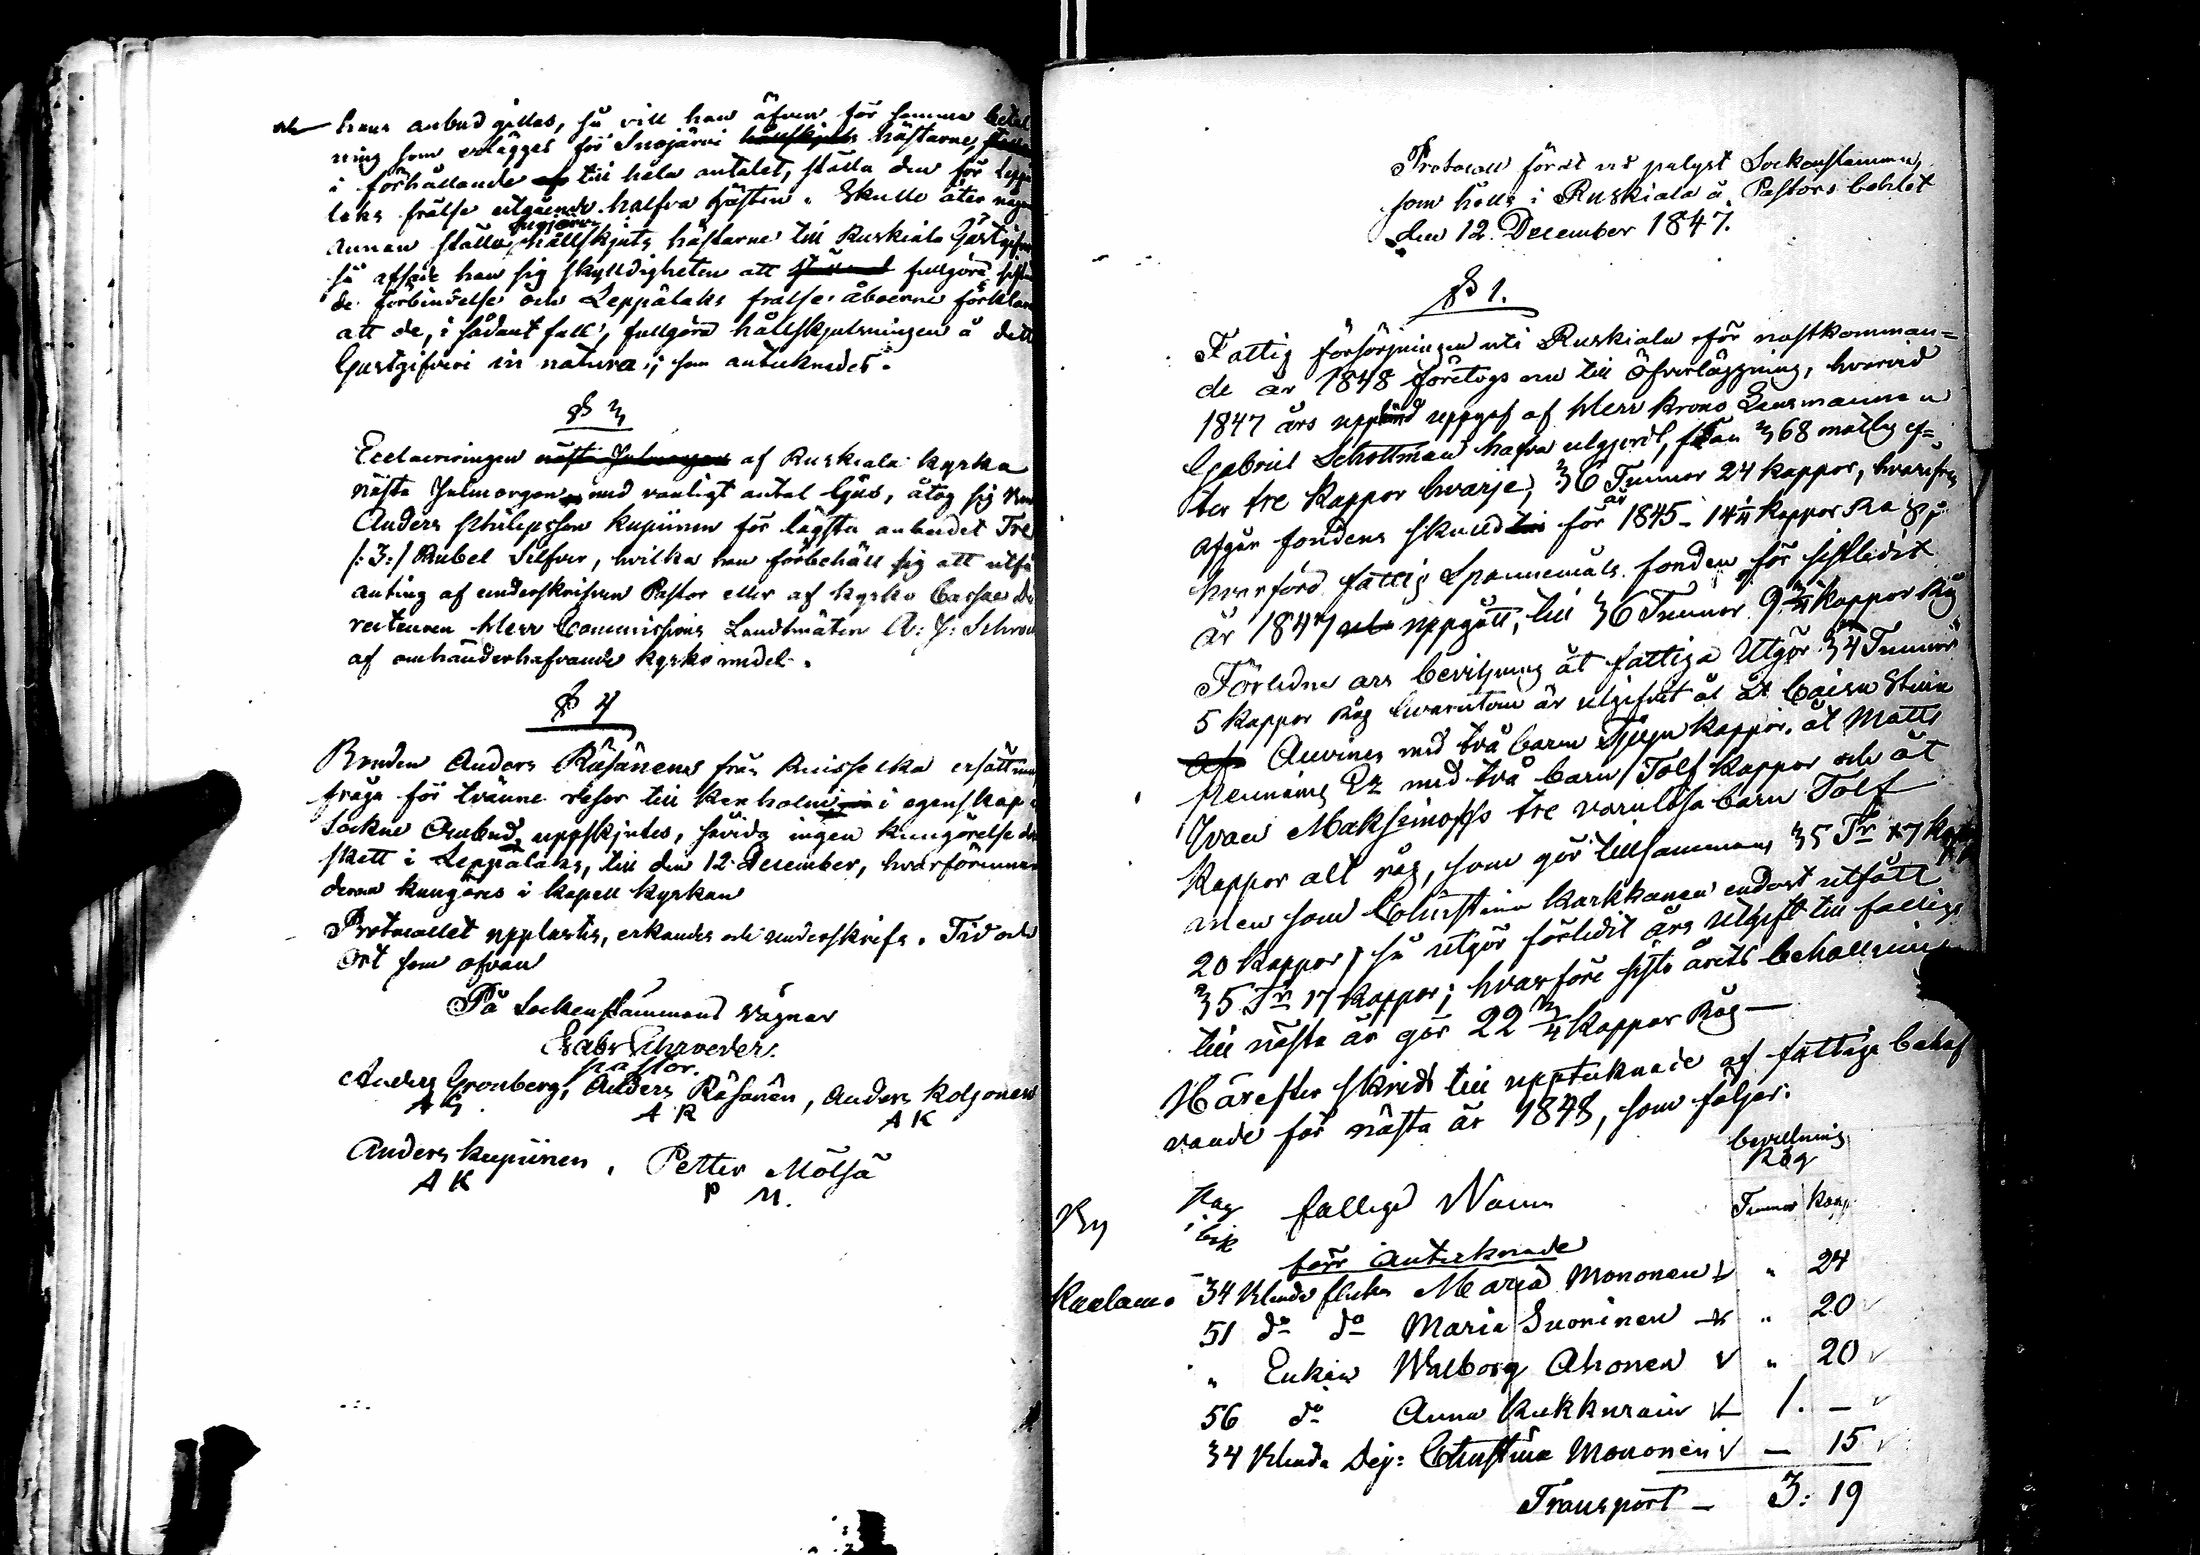 och hans anbud gillas, så vill han äfven för samma betal
ning som erlägges för Suojärvi hållskjuts hästarne,
i förhållande af till hela antalet, ställa den för Leppä
laks frälse utgående halfva hästen. Skulle åter någon
annan ställa Suojärvi hållskjuts hästarne till Ruskiala Gästgifveri
så afsade han sig skyldigheten att fullgöra
de förbindelse och Leppälaks frälse åboerne förklara
att de, i sådant fall, fullgöra hållskjutsningen å detta
Gästgifveri in natura; som antecknades.
§ 3
Eclaireringen nästa Julmorgon af Ruskiala kyrka
nästa Julmorgon med vanligt antal ljus, åtog sig
Anders Philipsson Kupiinen för lägsta anbudet Tre
/:3:/ Rubel Silfver, hvilka han förbehåll sig att utfå
anting af underskrifven Pastor eller af kyrko Cassae Di
recteuren Herr Commissions Landtmätern A: J: Schrov
af omhänderhafvande kyrko medel.
§ 4
Bonden Anders Räsänens från Ruisselka ersättnings
fråga för tvänne resor till Kexholm i egenskap
Sockne Ombud, uppskjutes, såvida ingen kungörelse
skett i Leppälaks, till den 12 December, hvarförinnan
denna kungöres i kapell kyrkan
Protocollet upplästes, erkändes och underskrefs. Tid och
Ort som ofvan
På Sockenstämmans vägnar
Gabr Ehrveder.
Pastor.
Anders Gronberg, Anders Räsänen, Anders Koljonen
A G A R A K
Anders Kupiinen, Petter Mölsä
A K P M.
Protocoll fördt vid pålyst Sockenstämma,
som hölls i Ruskiala å Pastors bohlet
den 12 December 1847.
§ 1.
Fattig försörjningen uti Ruskiala för nästkomman=
de år 1848 företogs nu till öfverläggning, hvarvid
1847 års uppbörd uppgaf af Herr Krono Länsmannen
Gabriel Schottman hafva utgjordt, från 368 matlag ef=
ter tre kappor hvarje, 36 Tunnor 24 kappor, hvarifrån
afgår fondens skuld för år 1845 - 14 1/4 kappor Råg
hvarförd fattig Spannemåls fonden för sistledit
år 1847 uppgått, till 36 Tunnor 9 3/4 kappor Råg
Förledne års beviljning åt fattiga Utgör 34 Tunnor
5 kappor råg hvarutom är utgifvit åt Caisa Stina
Auvinen med två barn Tjugu kappor, åt Matts
Henning Ez med två barn Tolf kappor och åt
Ivan Maksimoffs tre varnlösa barn Tolf
kappor alt råg, som gör tillsammans 35 Tr 17 kappor
men som Christina Karkkanen endast utfått
20 kappor, så utgör förledit års Utgift till fattiga
35 Tr 17 kappor; hvarföre sista årets behållning
till nästa år gör 22 3/4 kappor Råg
Härefter skreds till upptecknade af fattige behöf
vande för nästa år 1848, som följer.
bevillning
Råg
By Pag i bok fattiges Namn Tunnor Kapp
förr Antecknade
Kaalamo 34 Blinda flickan Maria Mononen " 24
51 do do Maria Suoninen " 20
" Enkan Walborg Ahonen " 20
56 do Anna Kukkurain 1. —
34 Blinda Dej: Christina Mononen — 15
Transport — 3: 19